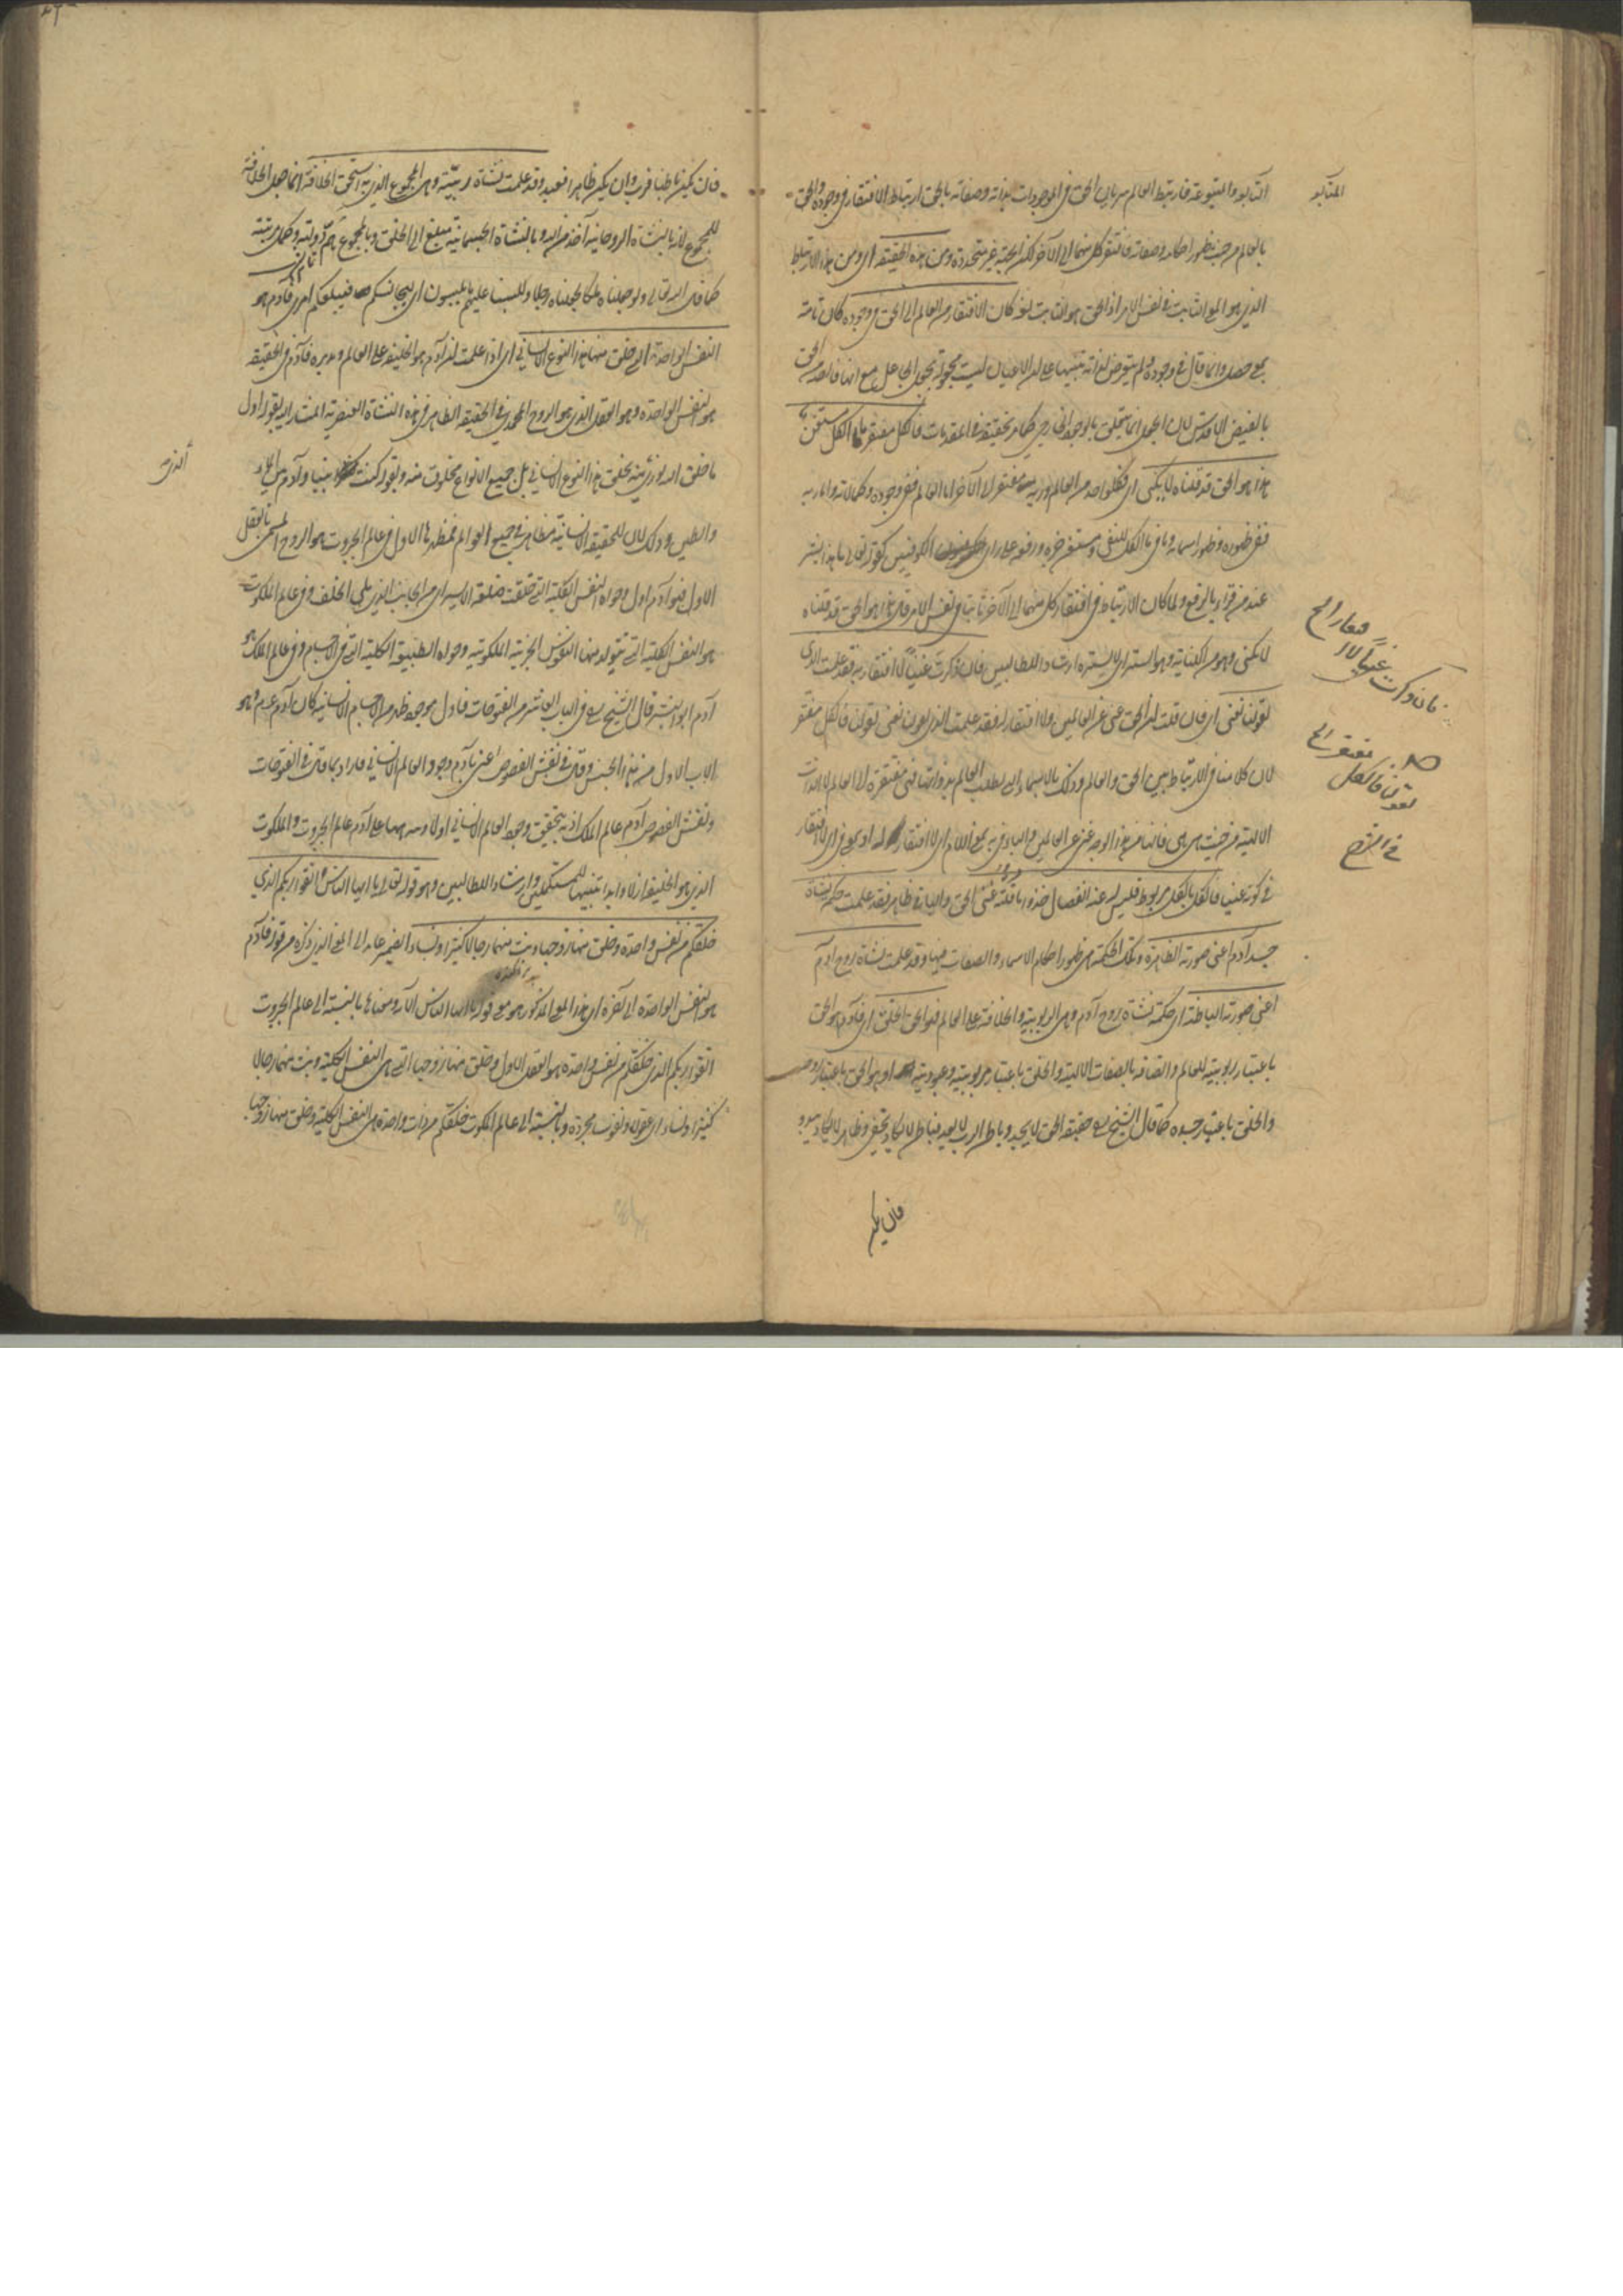 التابعة والمتبوعة فارتبط العالم سريان الحق في الموجودات بذاته وصفاته بالحق ارتباط الافتقار في وجوده والحق
بالعالم من حيث ظهور احكامه وصفاته فافتقر كل منهما الى الآخر لكن الجهة غير متحدة ومن هذه الحقيقة اي ومن هذا الارتباط
الذي هو المعنى الثابت في نفس الامر اذ الحق هو الثابت لغة كان الافتقار من العالم الى الحق في وجوده كان تامة
بمعنى حصل وانما قال في وجوده ولم يتعرض لذاته تنبيها على ان الاعيان ليست مجعولة بجعل الجاعل مع انها فائضة من الحق
بالفيض الاقدس لان الجعل انما يتعلق بالوجود الخارجي كما مر تحقيقه في المقدمات فالكل مفتقر ما الكل مستغن
هذا هو الحق قد قلناه لا نكني اي فكل واحد من العالم وربه مفتقر الى الآخر اما العالم ففي وجوده وكمالاته واما ربه
ففي ظهوره وظهور اسمائه وما في ما الكل للنفي ومستغن خبره ورفعه على راي الكوفيين كقوله تعالى ما هذا بشر
عند من قرأ بالرفع ولما كان الارتباط في افتقار كل منهما الى الآخر ثابتا في نفس الامر قال هذا هو الحق قد قلناه
لا نكني وهو من الكناية وهو الستر اي لا نستره ارشادا للطالبين فان ذكرت غنيا لا افتقار به فقد علمت الذي
بقولنا نعني اي فان قلت ان الحق غني عن العالمين ولا افتقار له فقد علمت الذي بقولنا نعني بقولنا فالكل مفتقر
لان كلامنا في الارتباط بين الحق والعالم وذلك بالاسماء التي تطلب العالم بذواتها فهي مفتقرة الى العالم لا الذات
الالهية من حيث هي هي فانها من هذا الوجه غني عن العالمين والباء في به بمعنى اللام اي لا افتقار له او بمعنى في اي لا افتقار
في كونه غنيا فالكل بالكل مربوط فليس له عنه انفصال خذوا ما قلته عني الحق والباقي ظاهر فقد علمت حكمة نشأة
جسد آدم اعني صورته الظاهرة وتلك الحكمة هي ظهور احكام الاسماء والصفات فيها وقد علمت نشأة روح آدم
اعني صورته الباطنة اي حكمة نشأة روح آدم وهي الربوبية والخلافة على العالم فهو الحق الخلق اي فآدم هو الحق
باعتبار ربوبيته للعالم واتصافه بالصفات الالهية والخلق باعتبار مربوبيته وعبوديته او هو الحق باعتبار روحه
والخلق باعتبار جسده كما قال الشيخ حقيقة الحق لا يحد وباطن الرب لا يعد فباطن لا يكاد يخفى وظاهر لا يكاد يبدو
فان يكن
المتابعة
فان ذكرت غنيا لا افتقار الخ
بقولنا فالكل مفتقر الخ
في الشرح
فان يكن باطنا فرب وان يكن ظاهرا فعبد وقد علمت نشأة رتبته وهي المجموع الذي به استحق الخلافة انما جعل الخلافة
للمجموع لانه بالنشأة الروحانية آخذ من الله وبالنشأة الجسمانية مبلغ الى الخلق وبالمجموع يتم دولته وكمال مرتبته
كما قال الله تعالى ولو جعلناه ملكا لجعلناه رجلا وللبسنا عليهم ما يلبسون اي ليجانسكم فيبلغكم امري فآدم هو
النفس الواحدة التي خلق منها هذا النوع الانساني اي اذا علمت ان آدم هو الخليفة على العالم ومدبره فآدم في الحقيقة
هو النفس الواحدة وهو العقل الذي هو الروح المحمدي في الحقيقة الظاهر في هذه النشأة العنصرية المشار اليه بقوله اول
ما خلق الله نوري منه يخلق هذا النوع الانساني بل جميع الانواع مخلوق منه وبقوله كنت نبيا وآدم بين الماء
والطين وذلك لان للحقيقة الانسانية مظاهر في جميع العوالم فمظهرها الاول في عالم الجبروت هو الروح المسمى بالعقل
الاول فهو آدم اول وحواه النفس الكلية التي خلقت من ضلعه الايسر اي من الجانب الذي يلي الخلف وفي عالم الملكوت
هو النفس الكلية التي يتولد منها النفوس الجزئية الملكوتية وحواه الطبيعة الكلية التي في الاجسام وفي عالم الملك هو
آدم ابو البشر قال الشيخ في الباب العاشر من الفتوحات فاول موجود ظهر من الاجسام الانسانية كان آدم وهو
الاب الاول من هذا الجنس وقال في نقش الفصوص اعني بآدم وجود العالم الانساني فاراد بما قال في الفتوحات
ونقش الفصوص آدم عالم الملك اذ به تحقيق وجود العالم الانساني اولا ومنه هاهنا على آدم عالم الجبروت والملكوت
الذي هو الخليفة ازلا وابدا تنبيها للمستكملين وارشادا للطالبين وهو قوله تعالى يا ايها الناس اتقوا ربكم الذي
خلقكم من نفس واحدة وخلق منها زوجها وبث منهما رجالا كثيرا ونساء الضمير عائد الى المعنى الذي ذكره من قوله فآدم
هو النفس الواحدة الى آخره اي هذا المعنى المذكور هو معنى قوله يا ايها الناس الآية ومعناها بالنسبة الى عالم الجبروت
اتقوا ربكم الذي خلقكم من نفس واحدة هو العقل الاول وخلق منها زوجها التي هي النفس الكلية وبث منهما رجالا
كثيرا ونساء اي عقولا ونفوسا مجردة وبالنسبة الى عالم الملكوت خلقكم من ذات واحدة هي النفس الكلية وخلق منها زوجها